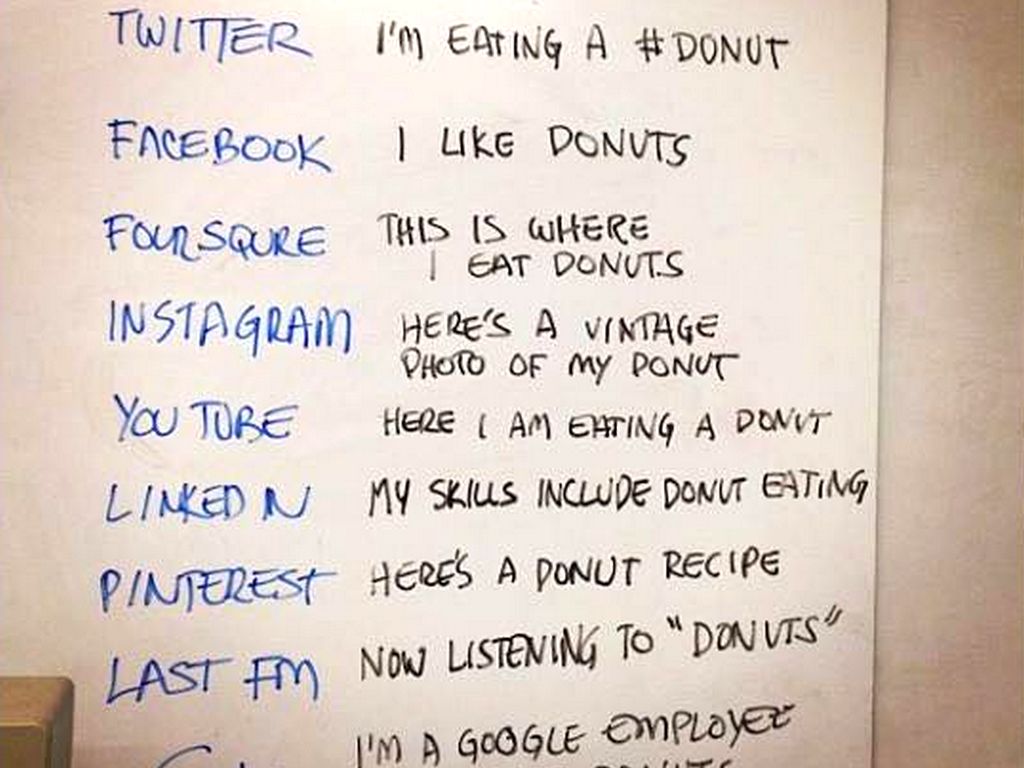 TWITTER I'M EATING A #DONUT
FACEBOOK I LIKE DONUTS
FOURSQURE THIS IS WHERE
I EAT DONUTS
INSTAGRAM HERE'S A VINTAGE
PHOTO OF MY DONUT
YOU TUBE HERE I AM EATING A DONUT
LINKED IN MY SKILLS INCLUDE DONUT EATING
PINTEREST HERE'S A DONUT RECIPE
LAST FM NOW LISTENING TO "DONUTS"
I'M A GOOGLE EMPLOYEE